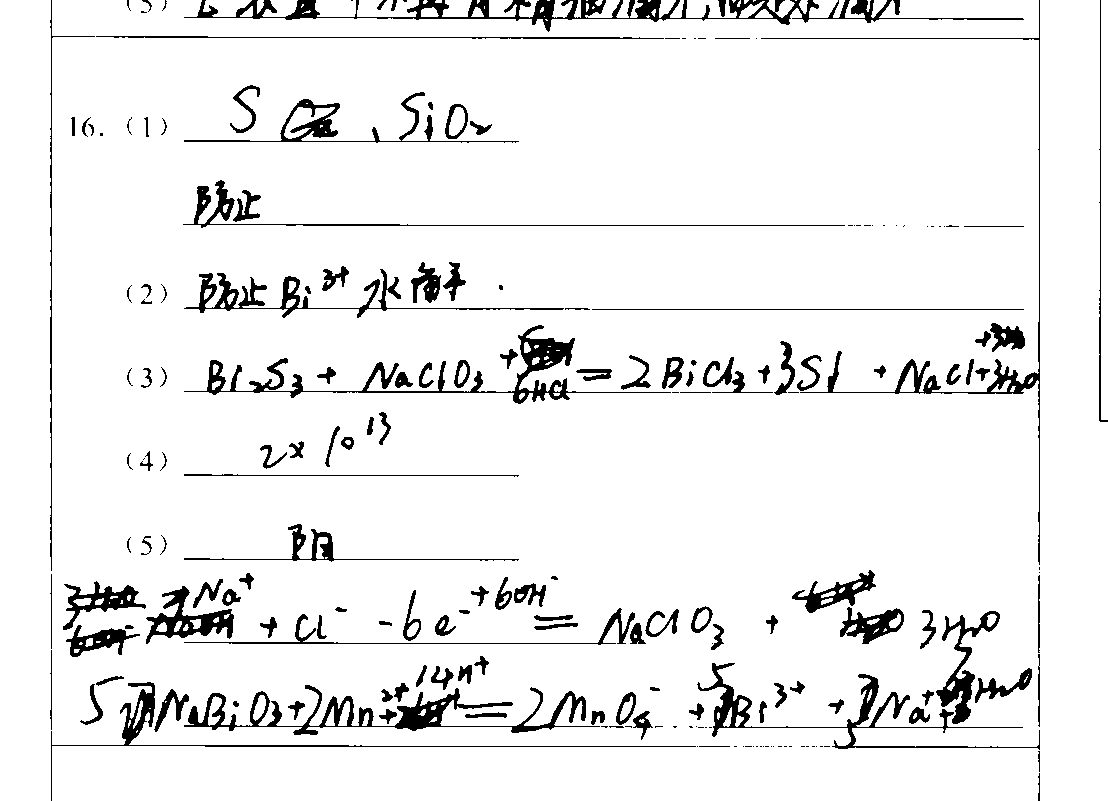 16. (1) S、SiO₂
防止
(2) 防止Bi³⁺水解.
(3) Bi₂S₃ + NaClO₃ + 6HCl = 2BiCl₃ + 3S↓ + NaCl + 3H₂O
(4) 2×10¹³
(5) 阴
Na⁺ + Cl⁻ - 6e⁻ + 6OH⁻ = NaClO₃ + 3H₂O
5NaBiO₃ + 2Mn²⁺ + 14H⁺ = 2MnO₄⁻ + 5Bi³⁺ + 5Na⁺ + 7H₂O